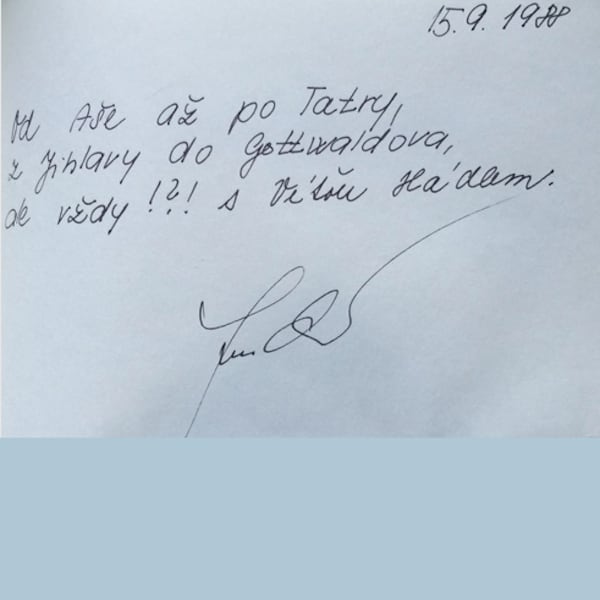 15.9.1988
Od Aše až po Tatry,
z Jihlavy do Gottwaldova,
ale vždy !?! s Víťou Hádam.